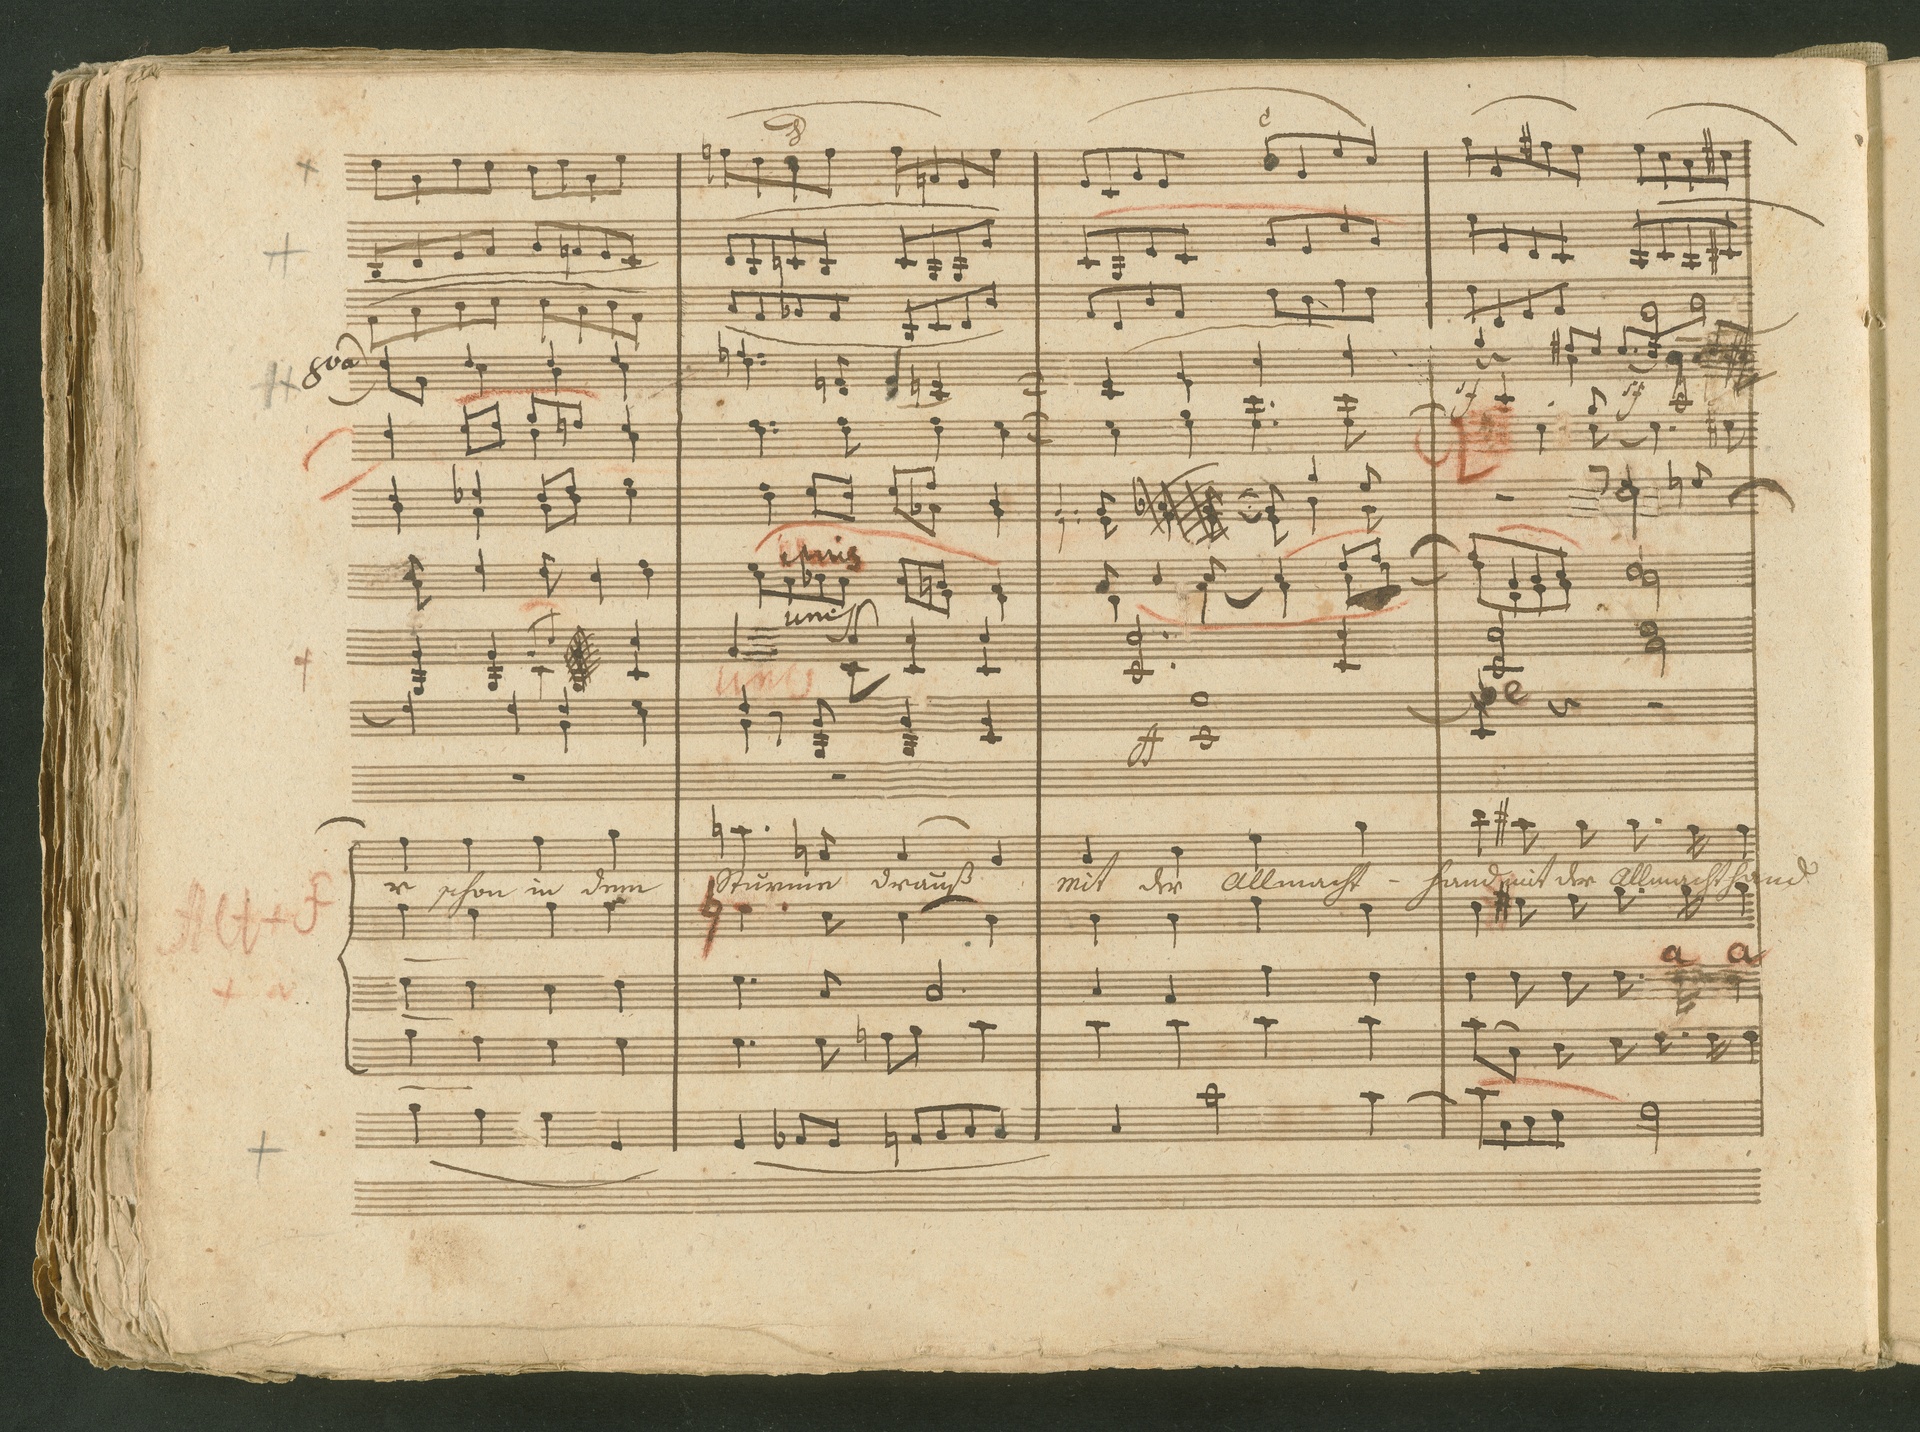 h
c
8va
sf sf
unis
unis
unis
e
r schon in dem Sturme drauß mit der Allmacht - hand mit der Allmachthand
Alt + F
+ a
a a